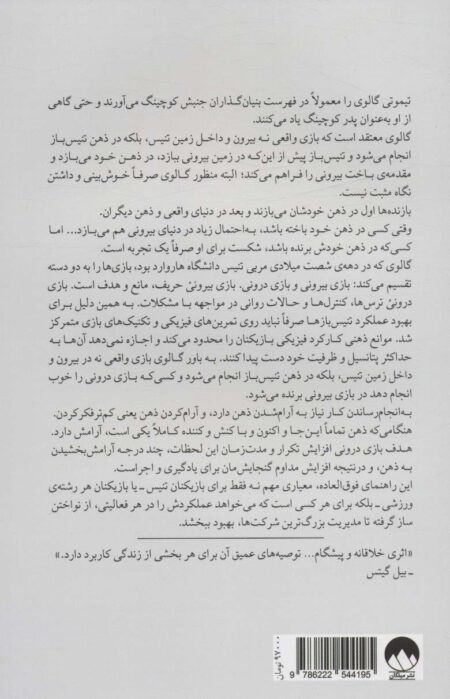 تیموتی گالوی را معمولاً در فهرست بنیان‌گذاران جنبش کوچینگ می‌آورند و حتی گاهی
از او به‌عنوان پدر کوچینگ یاد می‌کنند.
گالوی معتقد است که بازی واقعی نه بیرون و داخل زمین تنیس، بلکه در ذهن تنیس‌باز
انجام می‌شود و تنیس‌باز پیش از این‌که در زمین بیرونی ببازد، در ذهن خود می‌بازد و
مقدمه‌ی باخت بیرونی را فراهم می‌کند؛ البته منظور گالوی صرفاً خوش‌بینی و داشتن
نگاه مثبت نیست.
بازنده‌ها اول در ذهن خودشان می‌بازند و بعد در دنیای واقعی و ذهن دیگران.
وقتی کسی در ذهن خود باخته باشد، به‌احتمال زیاد در دنیای بیرونی هم می‌بازد... اما
کسی‌که در ذهن خودش برنده باشد، شکست برای او صرفاً یک تجربه است.
گالوی که در دهه‌ی شصت میلادی مربی تنیس دانشگاه هاروارد بود، بازی‌ها را به دو دسته
تقسیم می‌کند: بازی بیرونی و بازی درونی. بازی بیرونی حریف، مانع و هدف است. بازی
درونی ترس‌ها، کنترل‌ها و حالات روانی در مواجهه با مشکلات. به همین دلیل برای
بهبود عملکرد تنیس‌بازها صرفاً نباید روی تمرین‌های فیزیکی و تکنیک‌های بازی متمرکز
شد. موانع ذهنی کارکرد فیزیکی بازیکنان را محدود می‌کند و اجازه نمی‌دهد آن‌ها به
حداکثر پتانسیل و ظرفیت خود دست پیدا کنند. به باور گالوی بازی واقعی نه در بیرون و
داخل زمین تنیس، بلکه در ذهن تنیس‌باز انجام می‌شود و کسی‌که بازی درونی را خوب
انجام دهد در بازی بیرونی برنده می‌شود.
به‌انجام‌رساندن کار نیاز به آرام‌شدن ذهن دارد، و آرام‌کردن ذهن یعنی کم‌ترفکرکردن.
هنگامی‌که ذهن تماماً این‌جا و اکنون و با کنش و کننده کاملاً یکی است، آرامش دارد.
هدف بازی درونی افزایش تکرار و مدت‌زمان این لحظات، چند درجه آرامش‌بخشیدن
به ذهن، و درنتیجه افزایش مداوم گنجایش‌مان برای یادگیری و اجراست.
این راهنمای فوق‌العاده، معیاری مهم نه فقط برای بازیکنان تنیس ــ یا بازیکنان هر رشته‌ی
ورزشی ــ بلکه برای هر کسی است که می‌خواهد عملکردش را در هر فعالیتی، از نواختن
ساز گرفته تا مدیریت بزرگ‌ترین شرکت‌ها، بهبود ببخشد.
«اثری خلاقانه و پیشگام... توصیه‌های عمیق آن برای هر بخشی از زندگی کاربرد دارد.»
ــ بیل گیتس
۹۷۰۰۰ تومان
9 786222 544195
نشر میلکان